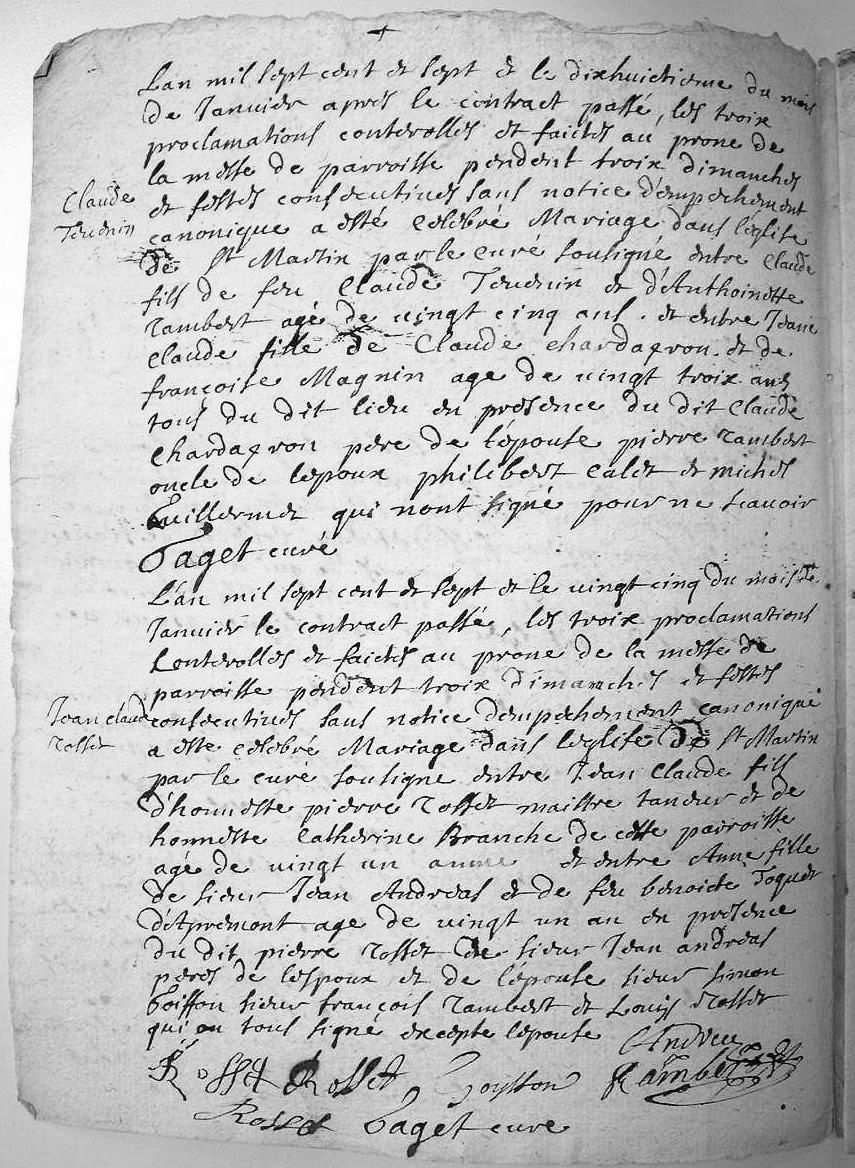 Lan mil sept cent et sept et le dixhuictieme du mois
de Janvier apres le contract passé, les troix
proclamations conterolles et faictes au prone de
la messe de parroisse pendent troix dimanches
et festes consecutives sans notice dempechement
Claude
Tevenin
canonique a esté celebré Mariage dans leglise
de St Martin par le curé sousigné entre Claude
fils de feu Claude Tevenin et d'Anthoinette
Rambert agé de vingt cinq ans. et entre Jeane
Claude fille de Claude chardacron et de
françoise Magnin age de vingt troix ans
tous du dit lieu en presence du dit Claude
Chardacron pere de l'epouse pierre Rambert
oncle de lepoux philibert et michel
Guillermet qui nont signé pour ne scavoir
Paget curé
L'an mil sept cent et sept et le vingt cinq du mois de
Janvier le contract passé, les troix proclamations
conterolles et faictes au prone de la messe de
parroisse pendent troix dimanches et festes
Jean claude
Rosset
consecutives sans notice dempechement canonique
a esté celebré Mariage dans leglise de St Martin
par le curé sousigne entre Jean Claude fils
d'honneste pierre Rosset maistre taneur et de
honneste Catherine Branche de cette parroisse
agé de vingt un et entre Anne fille
de sieur Jean Andreas et de feu benoite
d'Apremont age de vingt un an en presence
du dit pierre Rosset de sieur Jean andreas
peres de lespoux et de l'epouse sieur simon
boisson sieur françois Rambert et Louis Rosset
qui on tous signé excepte lepouse
Andrea
Rosset Rosset Boysson Rambert
Rosset Paget curé